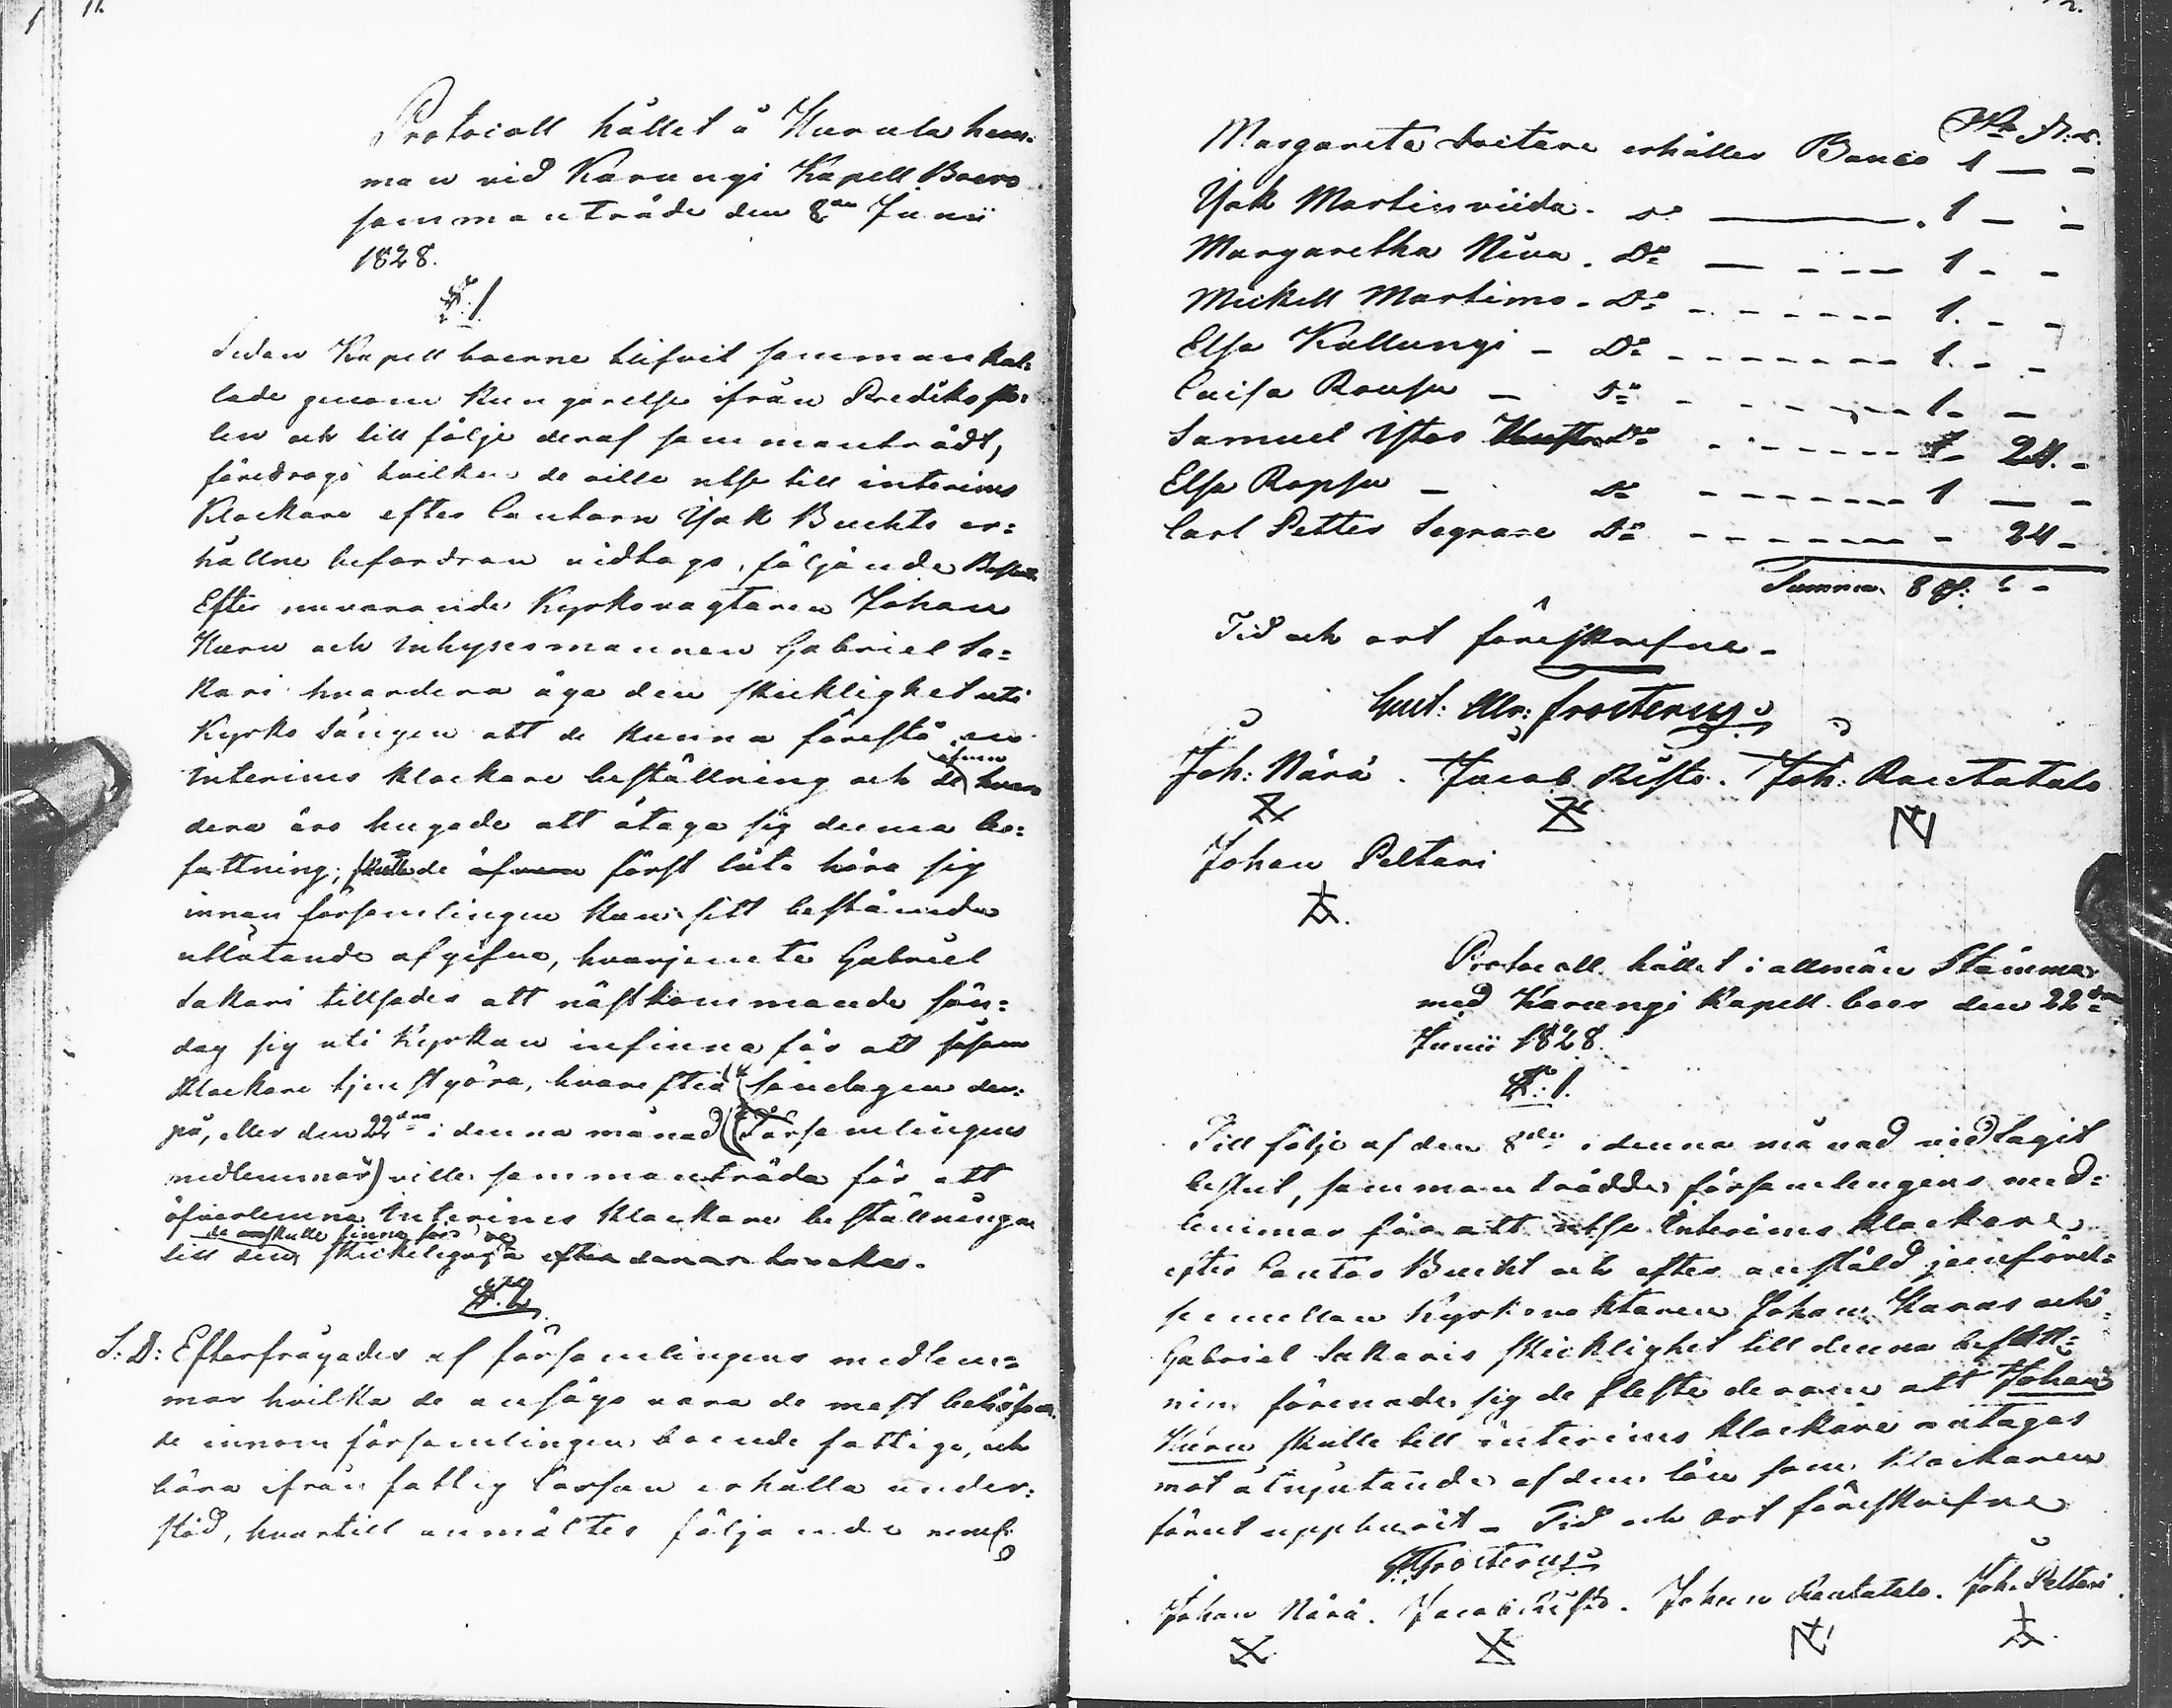 11.
Protocoll hållet å Kurula hem-
man vid Karungi Kapell Boers
sammanträde den 8de Junii
1828.
§. 1.
Sedan Kapellboerne blifvit samman kal-
lade genom Kungörelse ifrån Predikosto-
len och till följe deraf sammanträdt,
föredrogs hvilken de ville utse till interims
Klockare efter Cantorn Isak Buchts er-
hållne befordran vidtogs, följande Beslut:
Efter nuvarande Kyrkovagtaren Johan
Kuru och Inhysesmannen Gabriel Sa-
kari hvardera äga den skicklighet uti
Kyrko Sången att de kunna förestå en
äfven
Interims klockare beställning och de hvar
dera äro hugade att åtaga sig denna be-
fattning; skulle de äfven först låta höra sig
innan församlingen kan sitt bestämda
utlåtande afgifva, hvarjemte Gabriel
Sakari tillsades att nästkommande sön-
dag sig uti Kyrkan infinna för att såsom
klockare tjenstgöra, hvarefter söndagen der-
på, eller den 22dra i denna månad (Församlingens
medlemmar) ville sammanträda för att
öfverlemna Interims klockare beställningen
de skulle finna för
till den skickeligaste
§. 2.
S: D: Efterfrågades af församlingens medlem-
mar hvilka de ansågo vara de mest behöfvan-
de innom församlingen boende fattige, och
böra ifrån fattig Cassan erhålla under-
stöd, hvartill anmältes följande neml:
12.
Margareta Soitare erhåller Banco 1 — -
Isak Martinviida. Do — 1 - -
Margaretha Niva. Do — 1 - -
Mickell Martimo - Do - - - 1. - -
Elsa Kallungi - Do - - - 1. - -
Caisa Rousu - Do - - - 1. -
Samuel Do - - - 24. -
Elsa Ropsu - Do - - - 1 — -
Carl Petter Segrare Do - - - 24 -
Summa. 8
Tid och ort föreskrefne.
Gust: Frosterus
Joh: Närä. Jacob Risto. Joh: Rautatalo
Johan Peltari
Protocoll hållet i allmän Stämma
med Karungi Kapell boer den 22dra
Junii 1828.
§. 1.
Till följe af den 8de i denna månad vidtagit
beslut, sammanträdde församlingens med-
lemmar för att utse Interims klockare
efter Cantor Bucht och efter anstäld jemförel-
se mellan Kyrkovaktaren Johan Kurus och
Gabriel Sakaris skicklighet till denna befatt-
nin, förenade sig de fleste derom att Johan
Kuru skulle till interims klockare antagas
mot åtnjutande af den lön som klockaren
förut uppburit - Tid och ort föreskrefne
Frosterus
Johan Närä. Jacob Risto. Johan Rautatalo. Joh. Peltari.